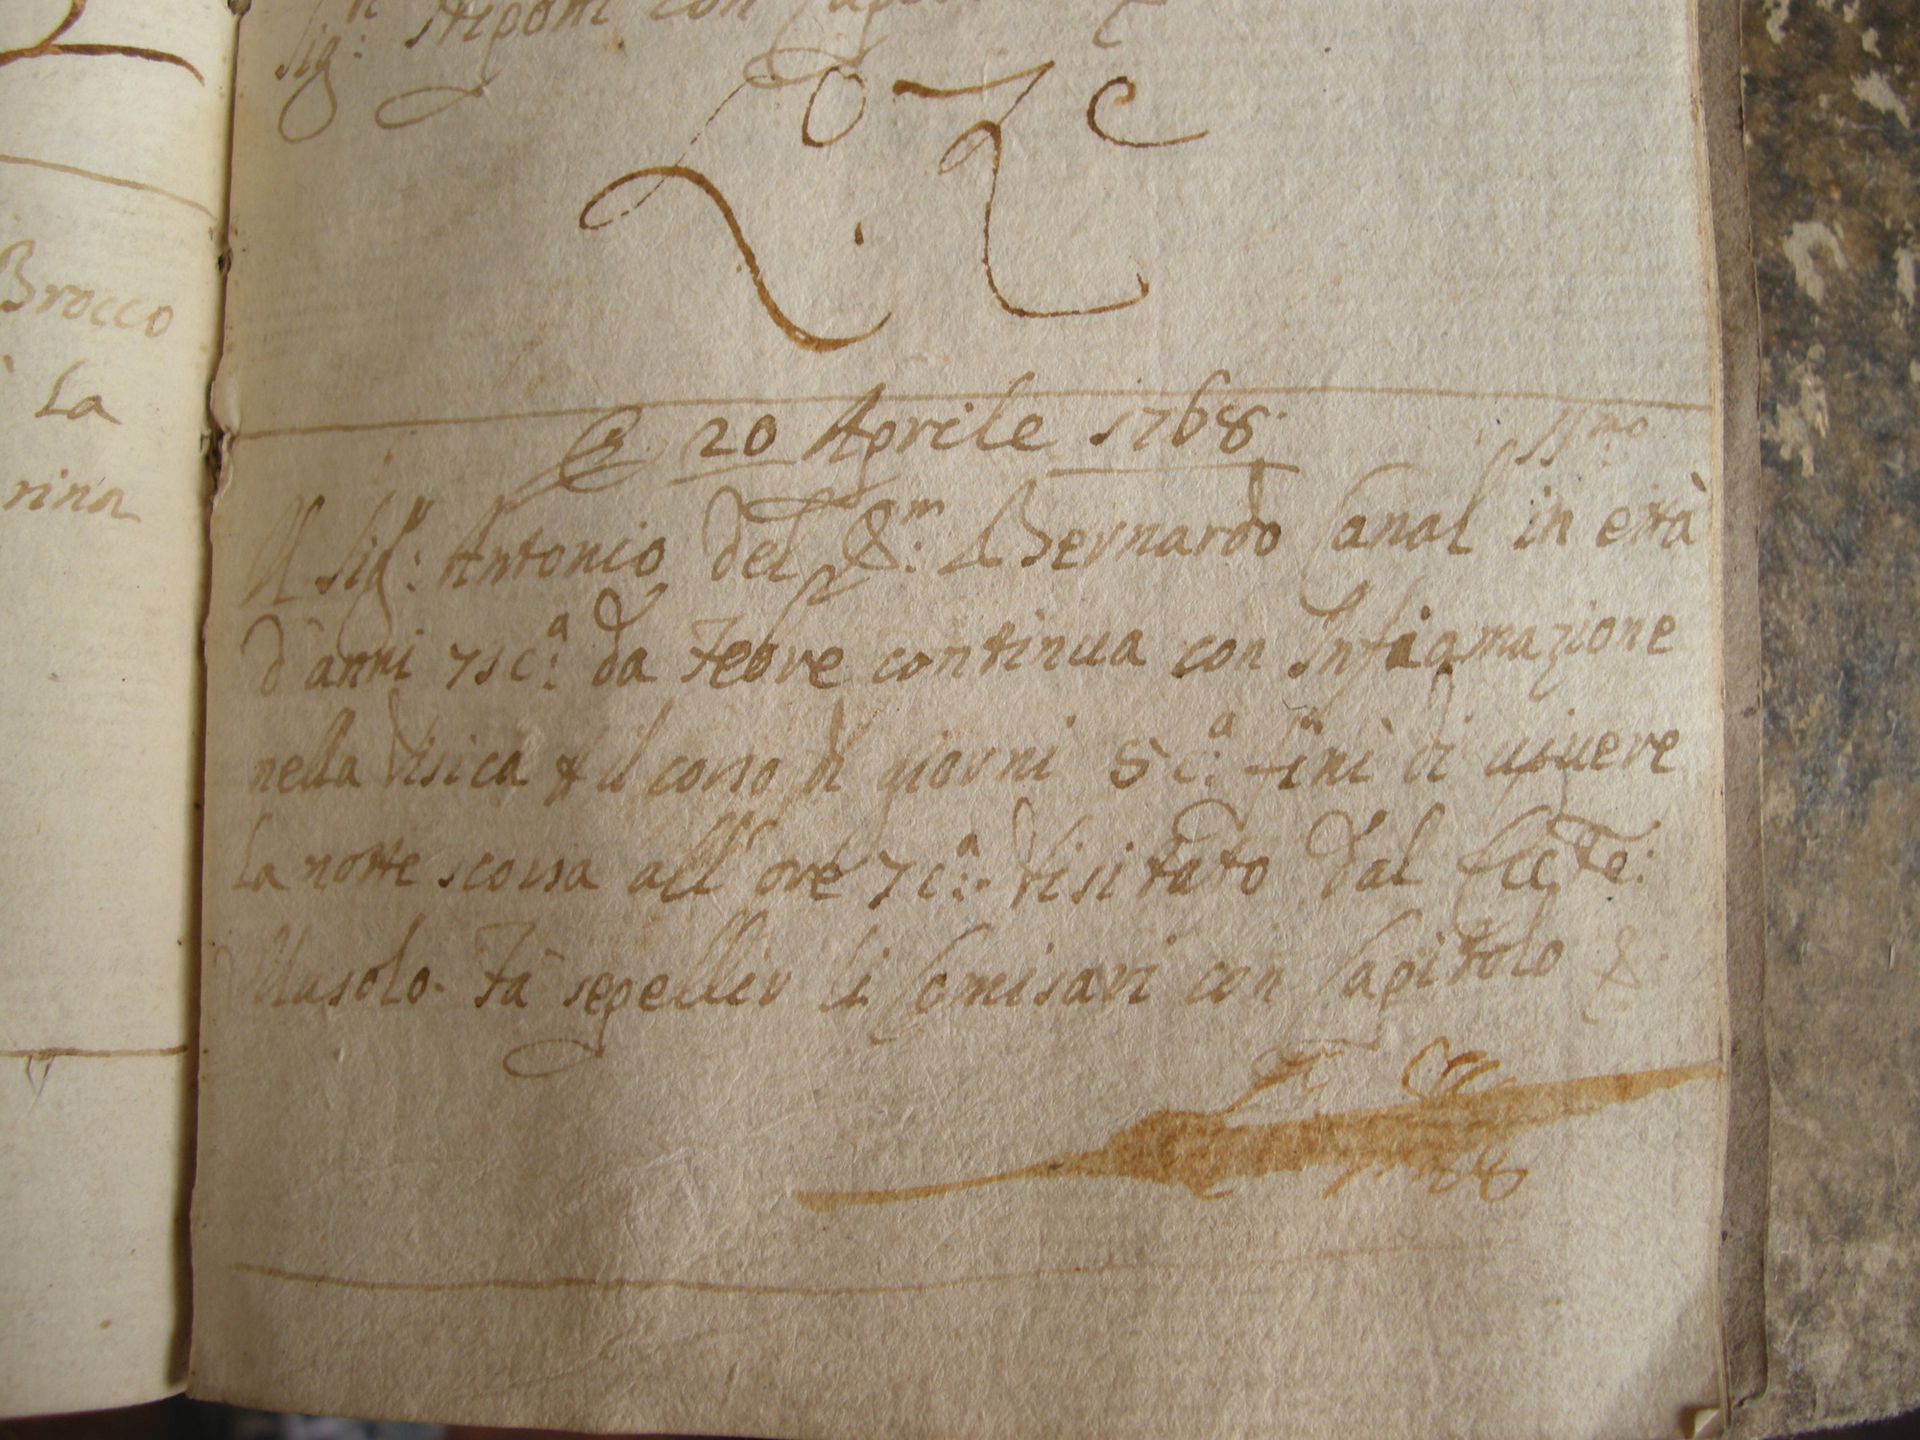 Sig.r Nipoti con Capi
L. 7 C
Brocco
La
rina
20 Aprile 1768
Il Sig.r Antonio del q.m Bernardo Canal in età
d'anni 71 c.a da Febre continua con Infiamazione
nella visica il corso di giorni 5 c.a finì di vivere
la notte scorsa all'ore 7 c.a Visitato dal Ecc.te:
Musolo. Fà sepellir li Comisari con Capitolo